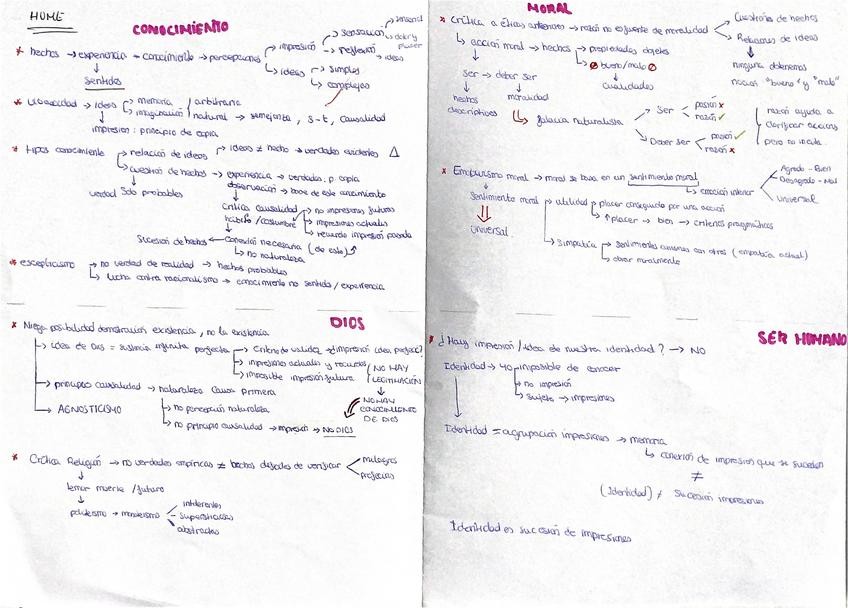 HUME
CONOCIMIENTO
* hechos → experiencia → conocimiento → percepciones → impresión → sensación
→ reflexión → ideas
dolor y placer
→ ideas → simples
→ complejas
sentidos
→ ideas → memoria
→ imaginación
arbitraria
natural → semejanza, s-t, causalidad
impresión: principio de copia
* tipos conocimiento → relación de ideas → ideas ≠ hecho → verdades evidentes
→ cuestión de hechos → experiencia → verdades: p. copia
verdad solo probables
observación → base de este conocimiento
crítica causalidad → no impresiones futuras
hábito/costumbre → impresiones actuales
→ recuerdo impresión pasada
Sucesión de hechos ← conexión necesaria (de esto)
↳ no naturaleza
* escepticismo → no verdad de realidad → hechos probables
↳ lucha contra racionalismo → conocimiento no sentido / experiencia
DIOS
* Niega posibilidad demostración existencia, no la existencia
→ idea de Dios = sustancia infinita perfecta → criterio de validez → ¿impresión idea perfecc?
→ impresiones actuales y recuerdos
→ imposible impresión futura
NO HAY LEGITIMACIÓN
→ principio causalidad → naturaleza causa primera
NO HAY CONOCIMIENTO DE DIOS
→ AGNOSTICISMO
→ no percepción naturaleza
→ no principio causalidad → impresión → NO DIOS
* Crítica Religión → no verdades empíricas ≠ hechos dejados de verificar
milagros
profecías
temor muerte / futuro
politeísmo → monoteísmo
intolerantes
supersticiosas
abstractas
MORAL
* Crítica a éticas anteriores → razón no es fuente de moralidad
Cuestiones de hechos
Relaciones de ideas
ninguna obtenemos
noción "bueno" y "malo"
↳ acción moral → hechos → propiedades objetos
↳ bueno/malo
cualidades
ser → deber ser
hechos descriptivos
moralidad
falacia naturalista
Ser
pasión x
razón ✓
Deber ser
pasión ✓
razón x
razón ayuda a
clarificar acciones
pero no incita.
* Empirismo moral → moral se basa en un sentimiento moral
↳ emoción interior
Agrado - Bien
Desagrado - Mal
Universal
Sentimiento moral
→ utilidad → placer conseguido por una acción
↳ ↑ placer → bien → criterios pragmáticos
universal.
→ Simpatía → sentimientos comunes con otros (empatía actual)
→ obrar moralmente
SER HUMANO
* ¿Hay impresión / idea de nuestra identidad? → NO
Identidad → yo imposible de conocer
→ no impresión
→ sujeto → impresiones
Identidad = agrupación impresiones → memoria
↳ conexión de impresión que se suceden
≠
(Identidad) ≠ sucesión impresiones
Identidad es sucesión de impresiones